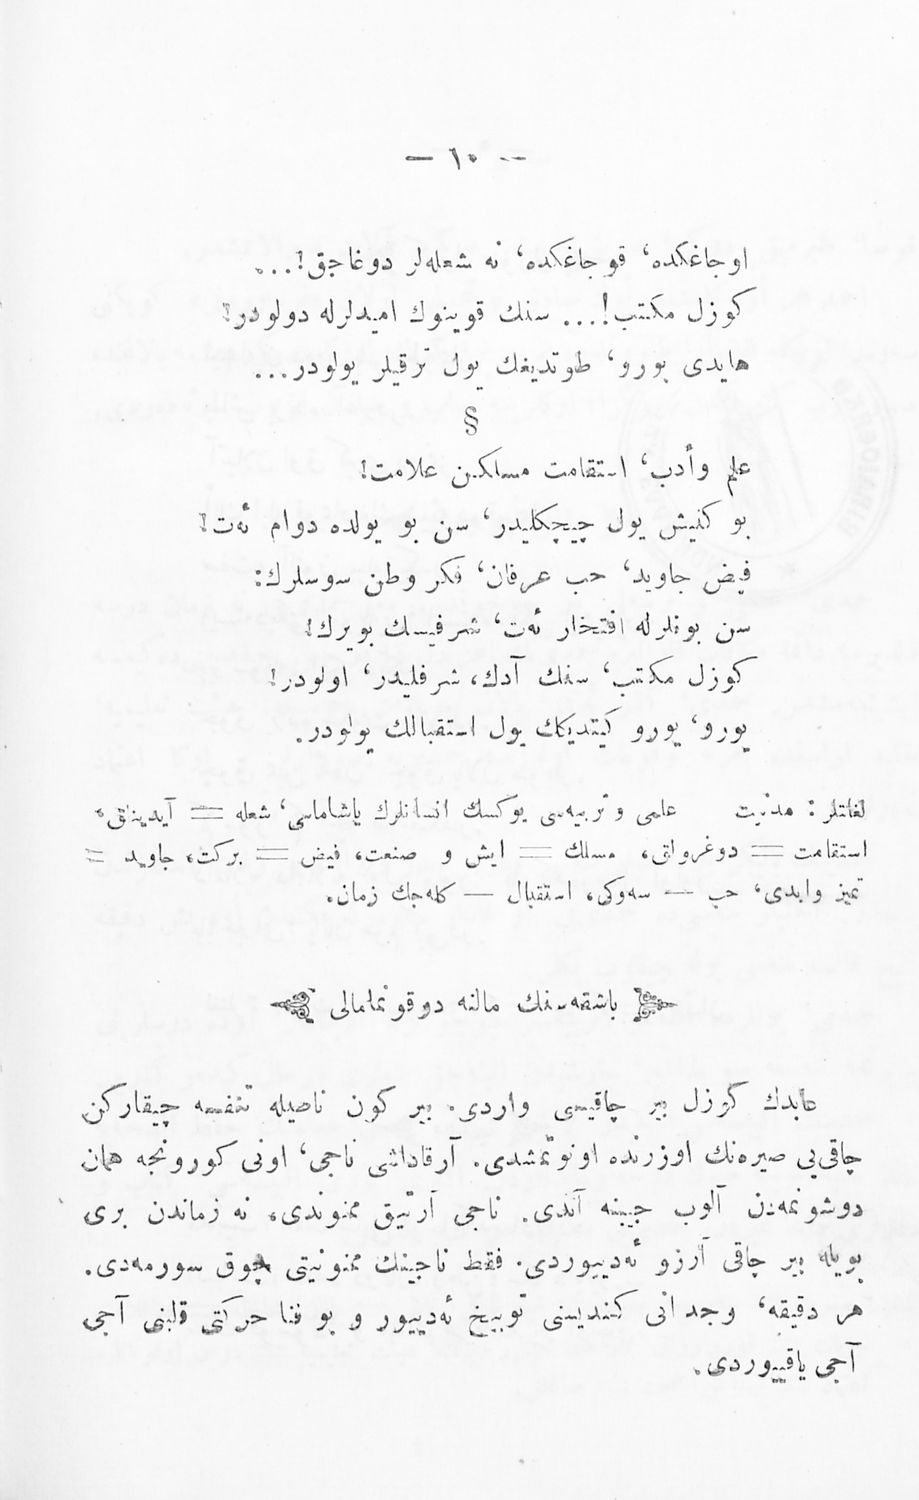 — ١٠ —
اوجاغكده، قوجاغكده، نه شعله‌لر دوغاجق!...
كوزل مكتب!... سنك قوينوك اميدلرله دولودر!
هايدى يورو، طوتديغك يول ترقيلر يولودر...
§
علم وأدب، استقامت مسلكـن علامت!
بو كنيش يول چيچكليدر، سن بو يولده دوام ئه‌ت!
فيض جاويد، حب عرفان، فكر وطن سوسلرك:
سن بونلرله افتخار ئه‌ت، شرفيسك بويرك!
كوزل مكتب، سنك آدك، شرفليدر، اولودر!
يورو، يورو كيتديكك يول استقبالك يولودر.
لغاتلر: مدنيت علمى و تربيه‌سى يوكسك انسانلرك ياشاماسى، شعله = آيدينلق،
استقامت = دوغرولق، مسلك = ايش و صنعت، فيض = بركت، جاويد =
تميز وابدى، حب — سه‌وكى، استقبال — كله‌جك زمان.
باشقه‌سنك مالنه دوقونمامالى
عابدك گوزل بير چاقيسى واردى. بير كون ناصيله تنفسه چيقاركن
چاقى‌يى صيره‌نك اوزرنده اونوتمشدى. آرقاداشى ناجى، اونى كورونجه همان
دوشونمه‌دن آلوب جيبنه آتدى. ناجى آرتيق ممنوندى، نه زماندن برى
بويله بير چاقى آرزو ئه‌دييوردى. فقط ناجينك ممنونيتى چوق سورمه‌دى.
هر دقيقه، وجدانى كنديسنى توبيخ ئه‌دييور و بو فنا حركتى قلبنى آجى
آجى ياقييوردى.